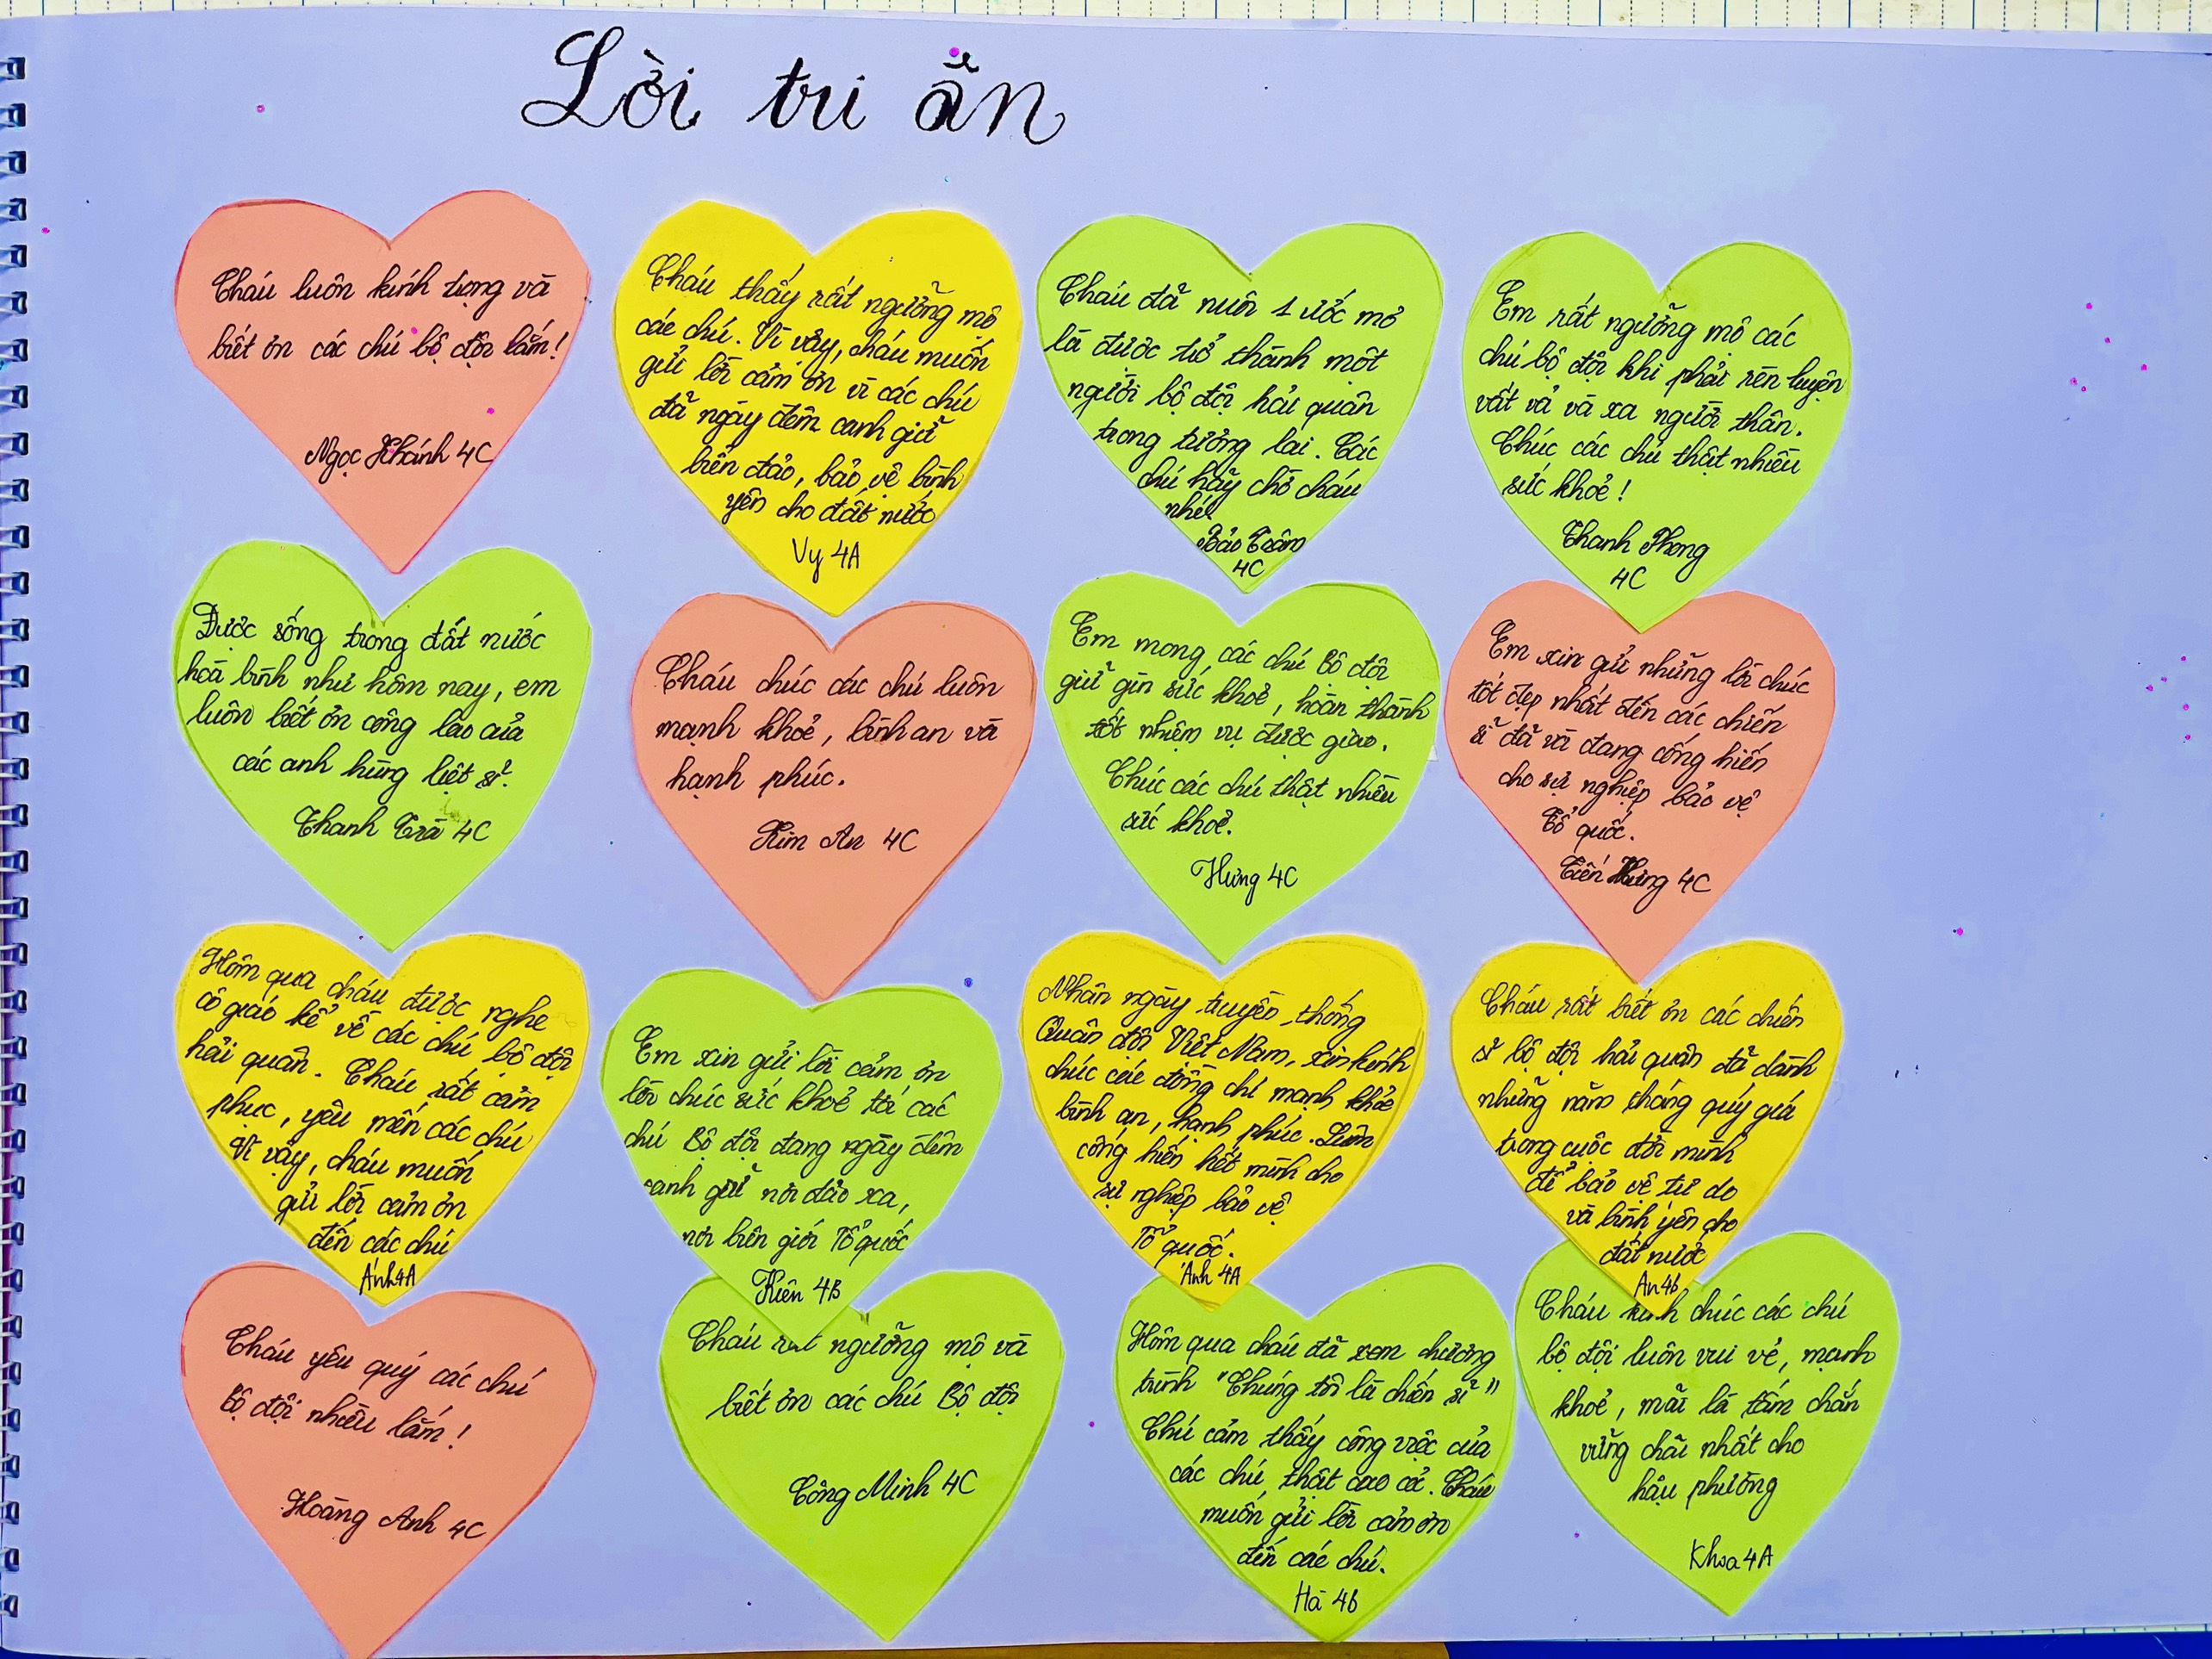 Lời tri ân
Cháu luôn kính trọng và
biết ơn các chú bộ đội lắm!
Ngọc Khánh 4C
Cháu thấy rất ngưỡng mộ
các chú. Vì vậy, cháu muốn
gửi lời cảm ơn vì các chú
đã ngày đêm canh giữ
biển đảo, bảo vệ bình
yên cho đất nước
Vy 4A
Cháu đã nuôi 1 ước mơ
là được trở thành một
người bộ đội hải quân
trong tương lai. Các
chú hãy chờ cháu
nhé!
Bảo Trâm
4C
Em rất ngưỡng mộ các
chú bộ đội khi phải rèn luyện
vất vả và xa người thân.
Chúc các chú thật nhiều
sức khoẻ!
Thanh Phong
4C
Được sống trong đất nước
hoà bình như hôm nay, em
luôn biết ơn công lao của
các anh hùng liệt sĩ.
Thanh Trà 4C
Cháu chúc các chú luôn
mạnh khoẻ, bình an và
hạnh phúc.
Kim An 4C
Em mong các chú Bộ đội
giữ gìn sức khoẻ, hoàn thành
tốt nhiệm vụ được giao.
Chúc các chú thật nhiều
sức khoẻ.
Hưng 4C
Em xin gửi những lời chúc
tốt đẹp nhất đến các chiến
sĩ đã và đang cống hiến
cho sự nghiệp bảo vệ
Tổ quốc.
Tiến Hưng 4C
Hôm qua cháu được nghe
cô giáo kể về các chú bộ đội
hải quân. Cháu rất cảm
phục, yêu mến các chú
Vì vậy, cháu muốn
gửi lời cảm ơn
đến các chú
Ánh 4A
Em xin gửi lời cảm ơn
lời chúc sức khoẻ tới các
chú Bộ đội đang ngày đêm
canh giữ nơi đảo xa,
nơi biên giới Tổ quốc
Kiên 4B
Nhân ngày truyền thống
Quân đội Việt Nam, xin kính
chúc các đồng chí mạnh khoẻ
bình an, hạnh phúc. Luôn
cống hiến hết mình cho
sự nghiệp bảo vệ
Tổ quốc.
Anh 4A
Cháu rất biết ơn các chiến
sĩ bộ đội hải quân đã dành
những năm tháng quý giá
trong cuộc đời mình
để bảo vệ tự do
và bình yên cho
đất nước
An 4b
Cháu yêu quý các chú
Bộ đội nhiều lắm!
Hoàng Anh 4C
Cháu rất ngưỡng mộ và
biết ơn các chú Bộ đội
Công Minh 4C
Hôm qua cháu đã xem chương
trình "Chúng tôi là chiến sĩ"
Chú cảm thấy công việc của
các chú thật cao cả. Cháu
muốn gửi lời cảm ơn
đến các chú.
Hà 4b
Cháu kính chúc các chú
bộ đội luôn vui vẻ, mạnh
khoẻ, mãi là tấm chắn
vững chãi nhất cho
hậu phương
Khoa 4A